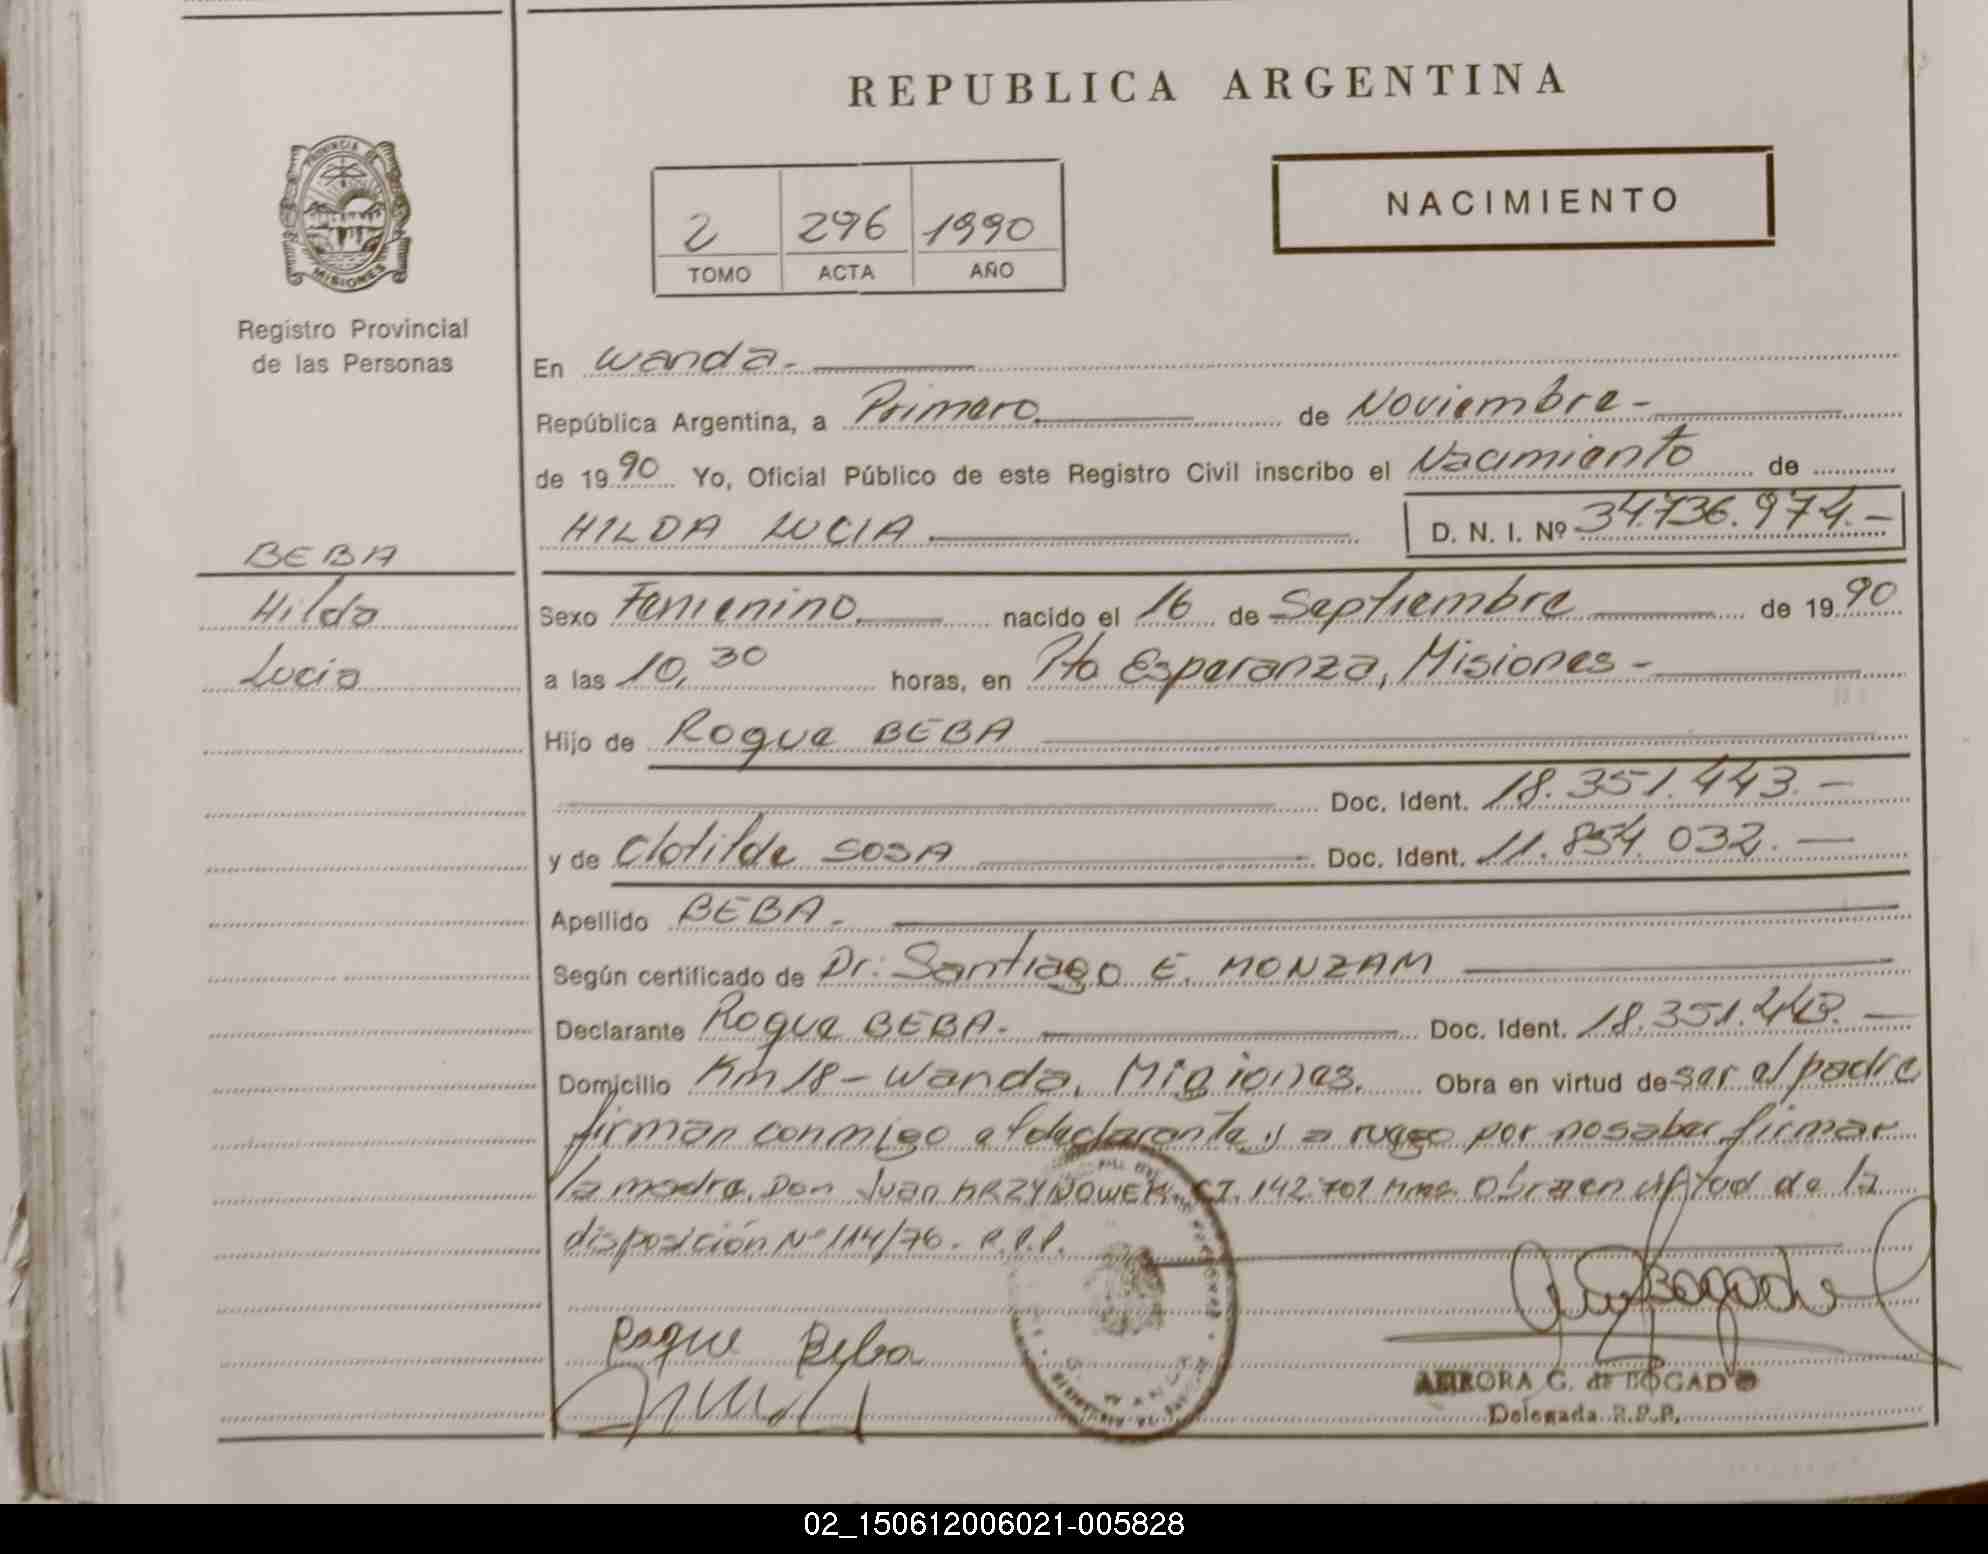 REPUBLICA ARGENTINA
PROVINCIA DE
MISIONES
Registro Provincial
de las Personas
NACIMIENTO
2 296 1990
TOMO ACTA AÑO
En Wanda.-
República Argentina, a Primero de Noviembre-
de 1990 Yo, Oficial Público de este Registro Civil inscribo el Nacimiento de
HILDA LUCIA D. N. I. Nº 34.736.974.-
BEBA
Hilda
Lucia
Sexo Femenino nacido el 16 de Septiembre de 1990
a las 10,30 horas, en Pto Esperanza, Misiones-
Hijo de Roque BEBA
Doc. Ident. 18.351.443.-
y de Clotilde SOSA Doc. Ident. 11.854.032.-
Apellido BEBA.-
Según certificado de Dr: Santiago E. MONZAM
Declarante Roque BEBA.- Doc. Ident. 18.351.443.-
Domicilio Km 18-Wanda, Misiones. Obra en virtud de ser el padre
firman conmigo el declarante y a ruego por no saber firmar
la madre. Don Juan KRZYNOWEK CI. 142.701 Obra en de la
disposición Nº 114/76. R.P.P.
Roque Beba
AURORA G. de BOGADO
Delegada R.P.P.
02_150612006021-005828